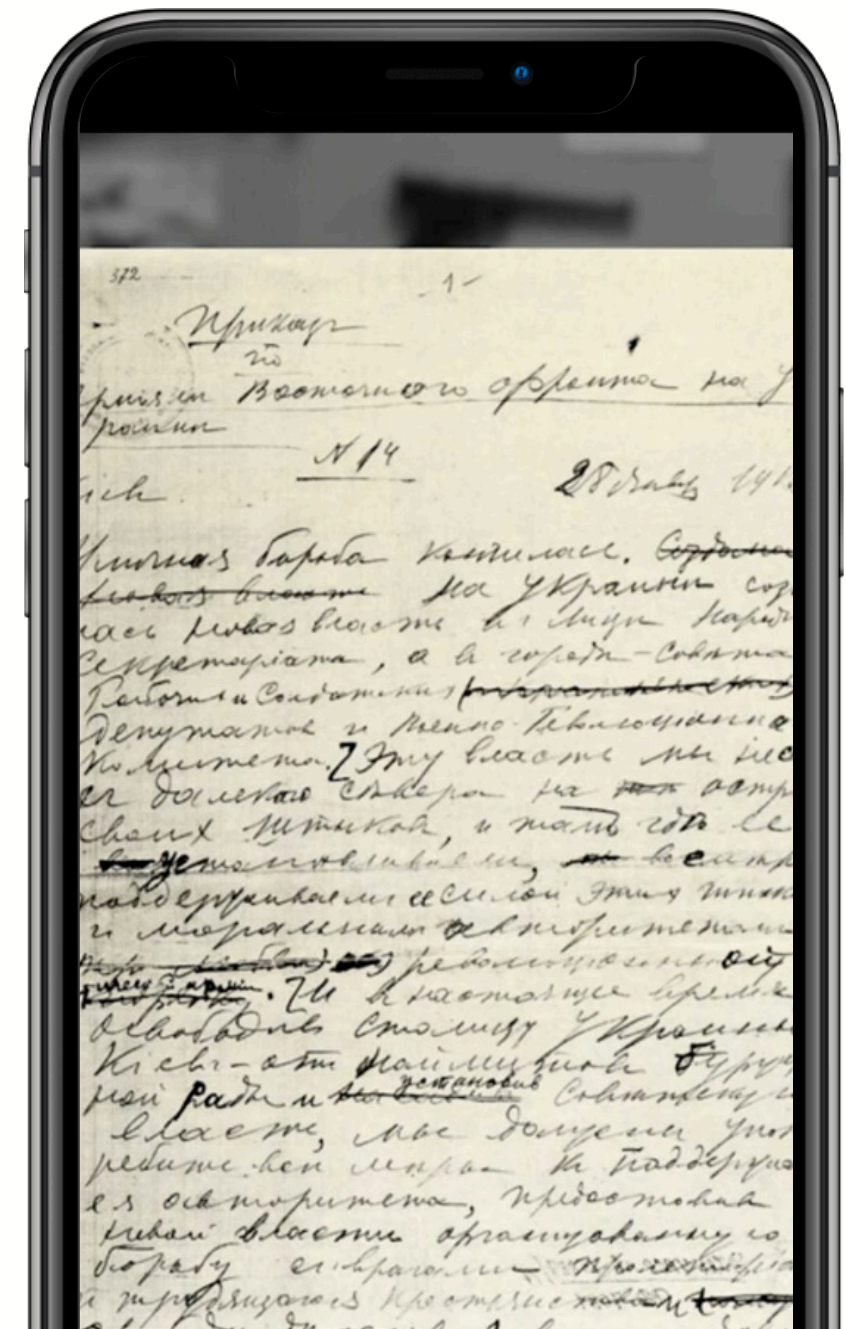 372
-1-
Приказ
по
рміям Восточного фронта на У
раини
N 14
28 Янв
іев.
Уличная борьба кончилась. Создана
новая власть На Украини соз
лась новая власть в лиці Народ
Секретаріата, а в городи - Совіта
Рабочих и Солдатских
Депутатов и Военно-Революціонна
Комитета. Эту власть мы нес
с далекаго Сівера на остр
своих штыков, и там гді ее
устанавливаем, всемір
поддерживаем силой этих штык
и моральным авторитетом
революціонной
. И в настоящее время
Освободив столицу Украины
Кіев - от наймитов буржу
ной рады и установив Совітскую
власть, мы должны упот
ребить всі міры к поддержа
ея авторитета, предоставив
новой власти организованную
борьбу с врагами
трудящагося крестьянства